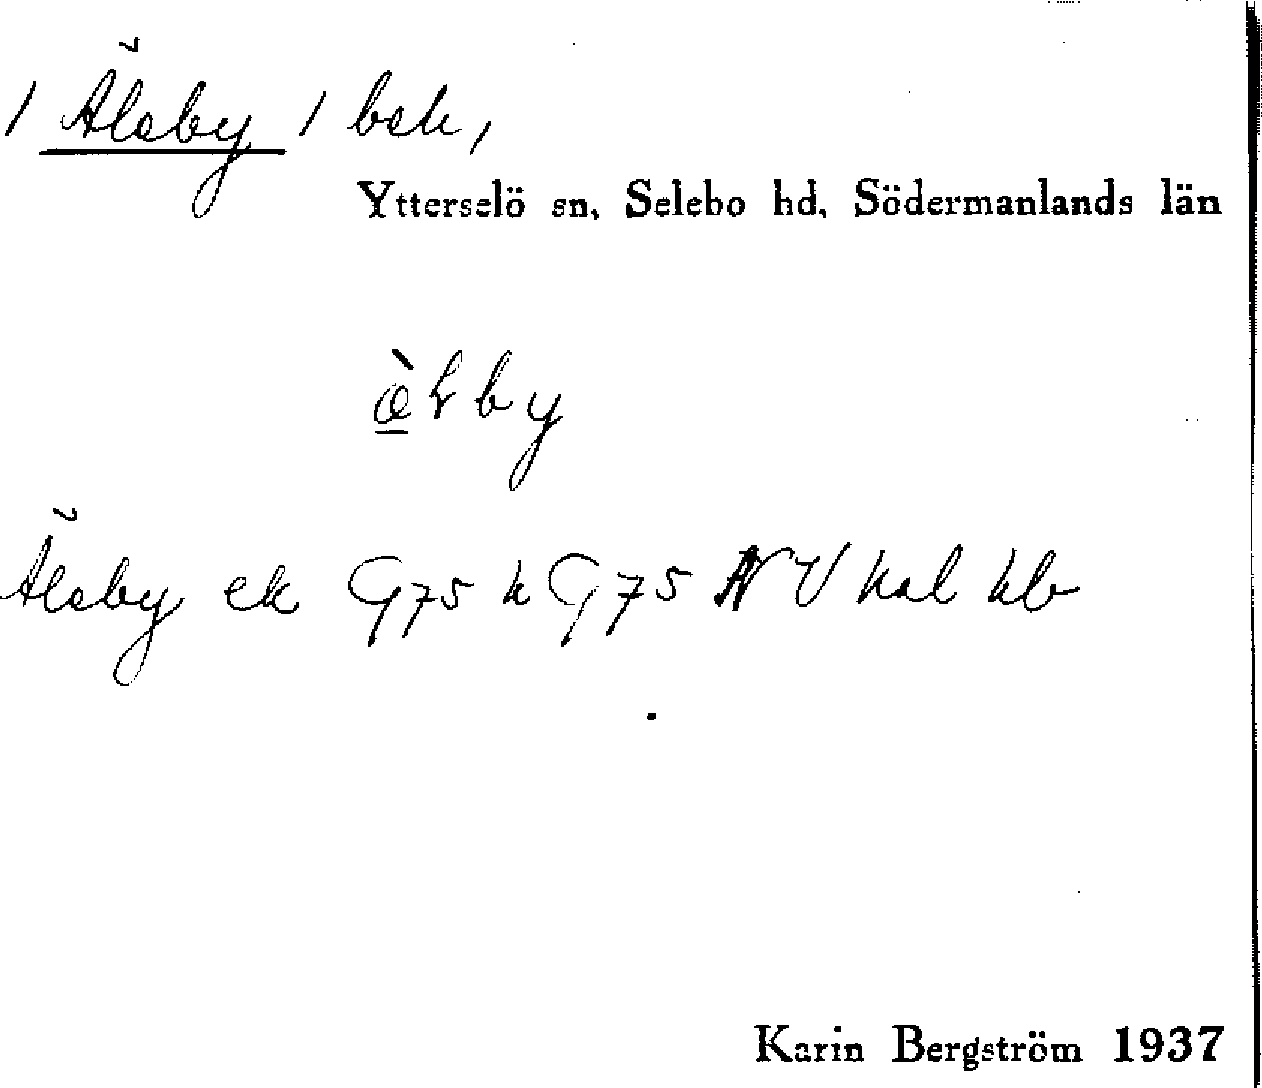 / Älsby / beb,
Ytterselö sn, Selebo hd, Södermanlands län
Älsby ek G75 k G75 NV kal kb
Karin Bergström 1937